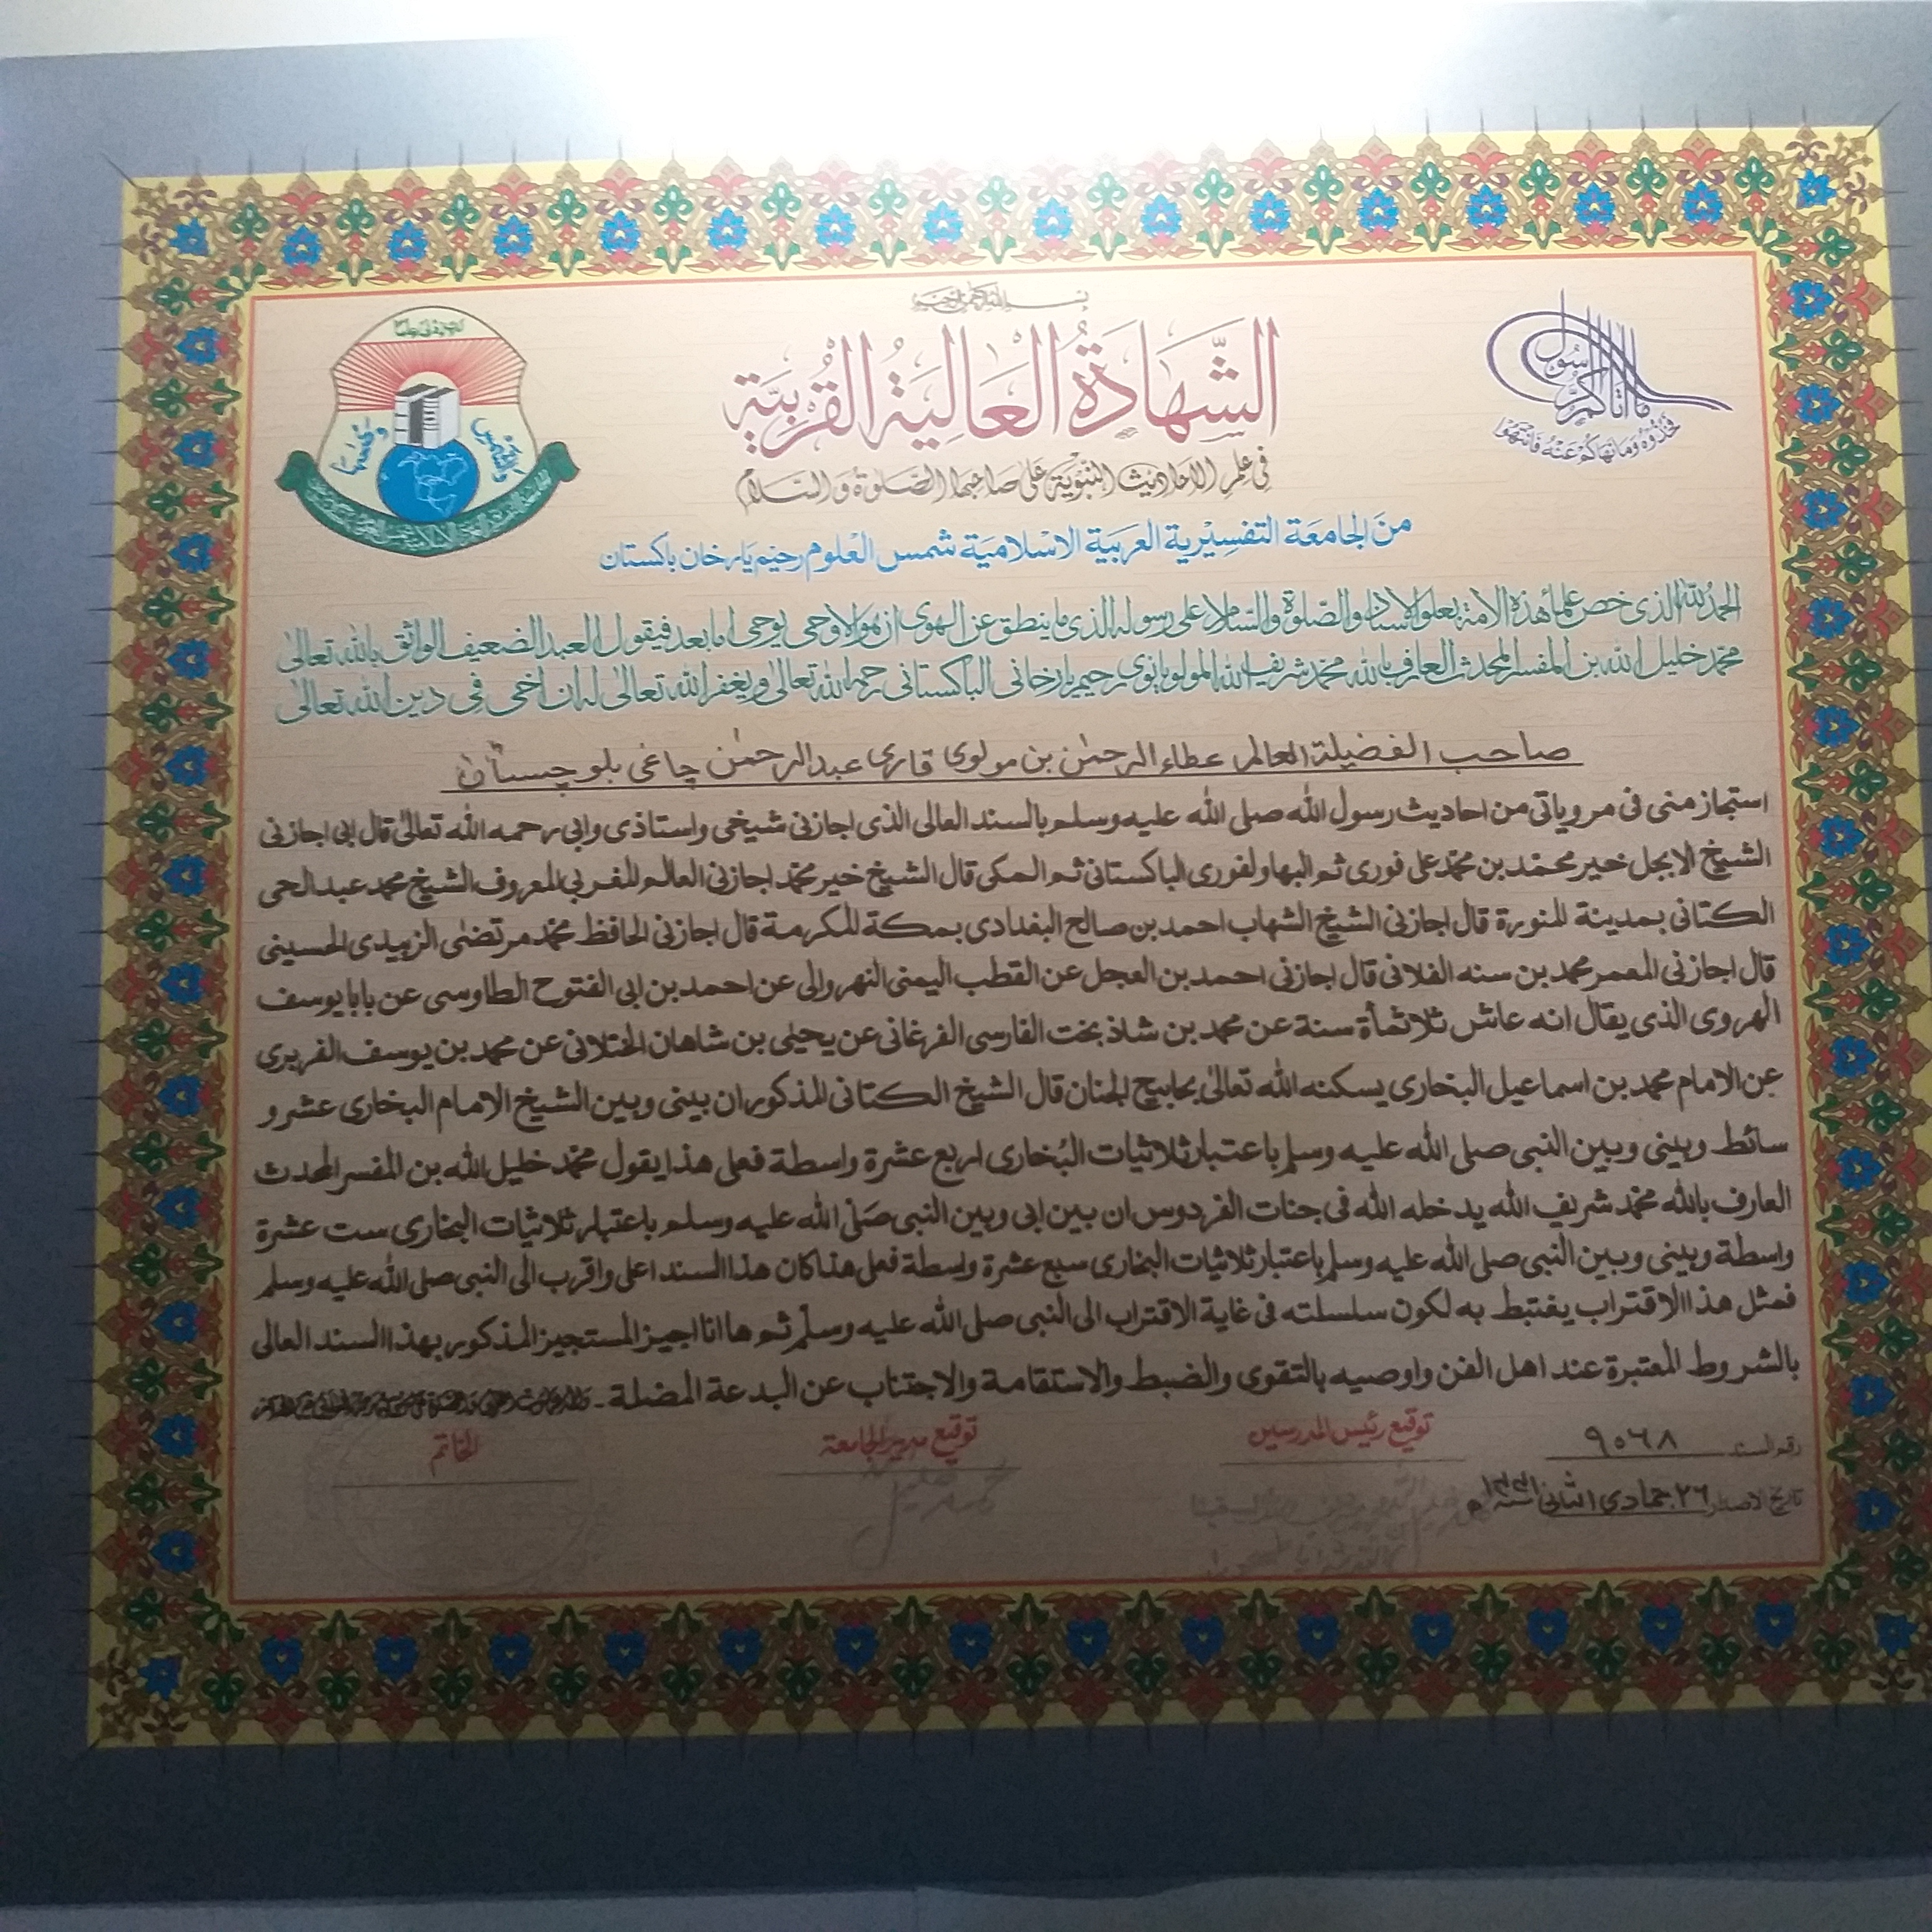 بسم الله الرحمن الرحيم
الشَّهَادَةُ العَالِيَةُ القُرْبِيَّة
فى علم الاحاديث النبوية على صاحبها الصلوة والسلام
ما اتاكم الرسول
فخذوه وما نهاكم عنه فانتهوا
من الجامعة التفسيرية العربية الاسلامية شمس العلوم رحيم يار خان باكستان
الحمد لله الذى خص علماء هذه الامة بعلو الاسناد والصلوة والسلام على رسوله الذى ما ينطق عن الهوى ان هو الا وحى يوحى اما بعد فيقول العبد الضعيف الواثق بالله تعالىٰ
محمد خليل الله بن المفسر المحدث العارف بالله محمد شريف الله المولويانوى رحيم يارخانى الباكستانى رحمه الله تعالىٰ ويغفر الله تعالىٰ له ان اخى فى دين الله تعالىٰ
صاحب الفضيلة العالم عطاء الرحمٰن بن مولوى قارى عبدالرحمٰن چاغى بلوچستان
استجاز منى فى مروياتى من احاديث رسول الله صلى الله عليه وسلم بالسند العالى الذى اجازنى شيخى واستاذى وابى رحمه الله تعالىٰ قال ابى اجازنى
الشيخ الابجل خير محمد بن محمد على فورى ثم البهاولفورى الباكستانى ثم المكى قال الشيخ خير محمد اجازنى العالم المغربى المعروف الشيخ محمد عبدالحى
الكتانى بمدينة المنورة قال اجازنى الشيخ الشهاب احمد بن صالح البغدادى بمكة المكرمة قال اجازنى الحافظ محمد مرتضىٰ الزبيدى الحسينى
قال اجازنى المعمر محمد بن سنه الفلانى قال اجازنى احمد بن العجل عن القطب اليمنى النهروالى عن احمد بن ابى الفتوح الطاوسى عن بابا يوسف
الهروى الذى يقال انه عاش ثلاثمأة سنة عن محمد بن شاذ بخت الفارسى الفرغانى عن يحيٰى بن شاهان الختلانى عن محمد بن يوسف الفربرى
عن الامام محمد بن اسماعيل البخارى يسكنه الله تعالىٰ بحابيح الجنان قال الشيخ الكتانى المذكور ان بينى وبين الشيخ الامام البخارى عشر و
سائط وبينى وبين النبى صلى الله عليه وسلم باعتبار ثلاثيات البُخارى اربع عشرة واسطة فعلى هذا يقول محمد خليل الله بن المفسر المحدث
العارف بالله محمد شريف الله يدخله الله فى جنات الفردوس ان بين ابى وبين النبى صلى الله عليه وسلم باعتبار ثلاثيات البخارى ست عشرة
واسطة وبينى وبين النبى صلى الله عليه وسلم باعتبار ثلاثيات البخارى سبع عشرة واسطة فعلى هذا كان هذا السند اعلى واقرب الى النبى صلى الله عليه وسلم
فمثل هذا الاقتراب يغتبط به لكون سلسلته فى غاية الاقتراب الى النبى صلى الله عليه وسلم ثم ها انا اجيز المستجيز المذكور بهذا السند العالى
بالشروط المعتبرة عند اهل الفن واوصيه بالتقوى والضبط والاستقامة والاجتناب عن البدعة المضلة۔
رقم السند ٩٥٦٨
توقيع رئيس المدرسين
توقيع مدير الجامعة
الخاتم
تاريخ الاصدار ٢٦ جمادى الثانى ١٤٤١ﮪ